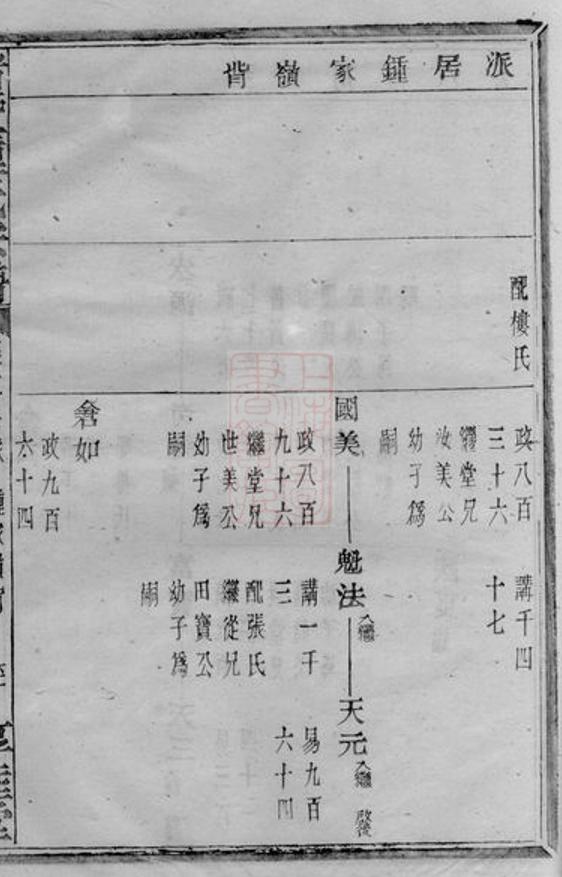 派居鍾家嶺背
配樓氏
政八百
三十六
繼堂兄
汝美公
幼子爲
嗣
講千四
十七
國美
政八百
九十六
繼堂兄
世美公
幼子爲
嗣
魁法
入繼
講一千
三
配張氏
繼從兄
田寶公
幼子爲
嗣
天元
入繼
易九百
六十四
政九百
六十四